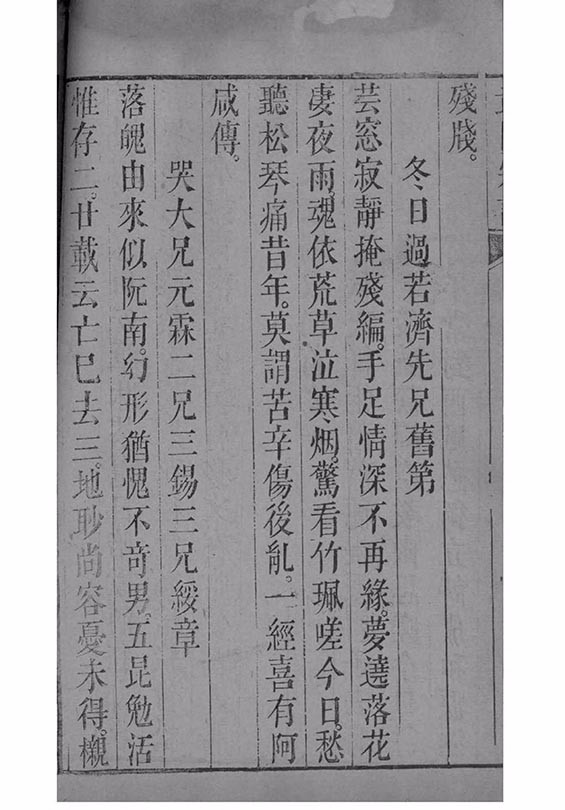 殘牋。
冬日過若濟先兄舊第
芸窓寂靜掩殘編。手足情深不再緣。夢遶落花
凄夜雨。魂依荒草泣寒烟。驚看竹珮嗟今日。愁
聽松琴痛昔年。莫謂苦辛傷後胤。一經喜有阿
咸傳。
哭大兄元霖二兄三錫三兄綏章
落魄由來似阮南。幻形猶愧不奇男。五昆勉活
惟存二。廿載云亡巳去三。地眇尚容憂未得。櫬